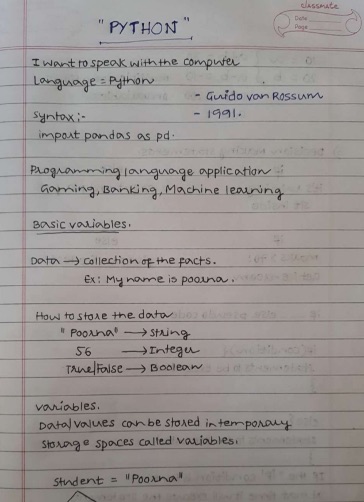 classmate
Date
Page
"PYTHON"
I want to speak with the computer
Language = Python
- Guido van Rossum
- 1991.
Syntax :-
import pandas as pd.
Programming language application :-
Gaming, Banking, Machine learning
Basic variables.
Data → collection of the facts.
Ex: My name is poorna.
How to store the data
"Poorna" → String
56 → Integer
True/False → Boolean
variables.
Data/values can be stored in temporary
storage spaces called variables.
Student = "Poorna"